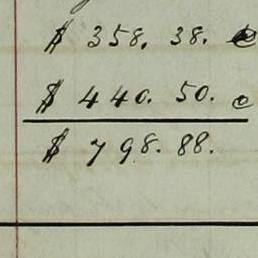 $ 358. 38. c
$ 440. 50. c
$ 798. 88.